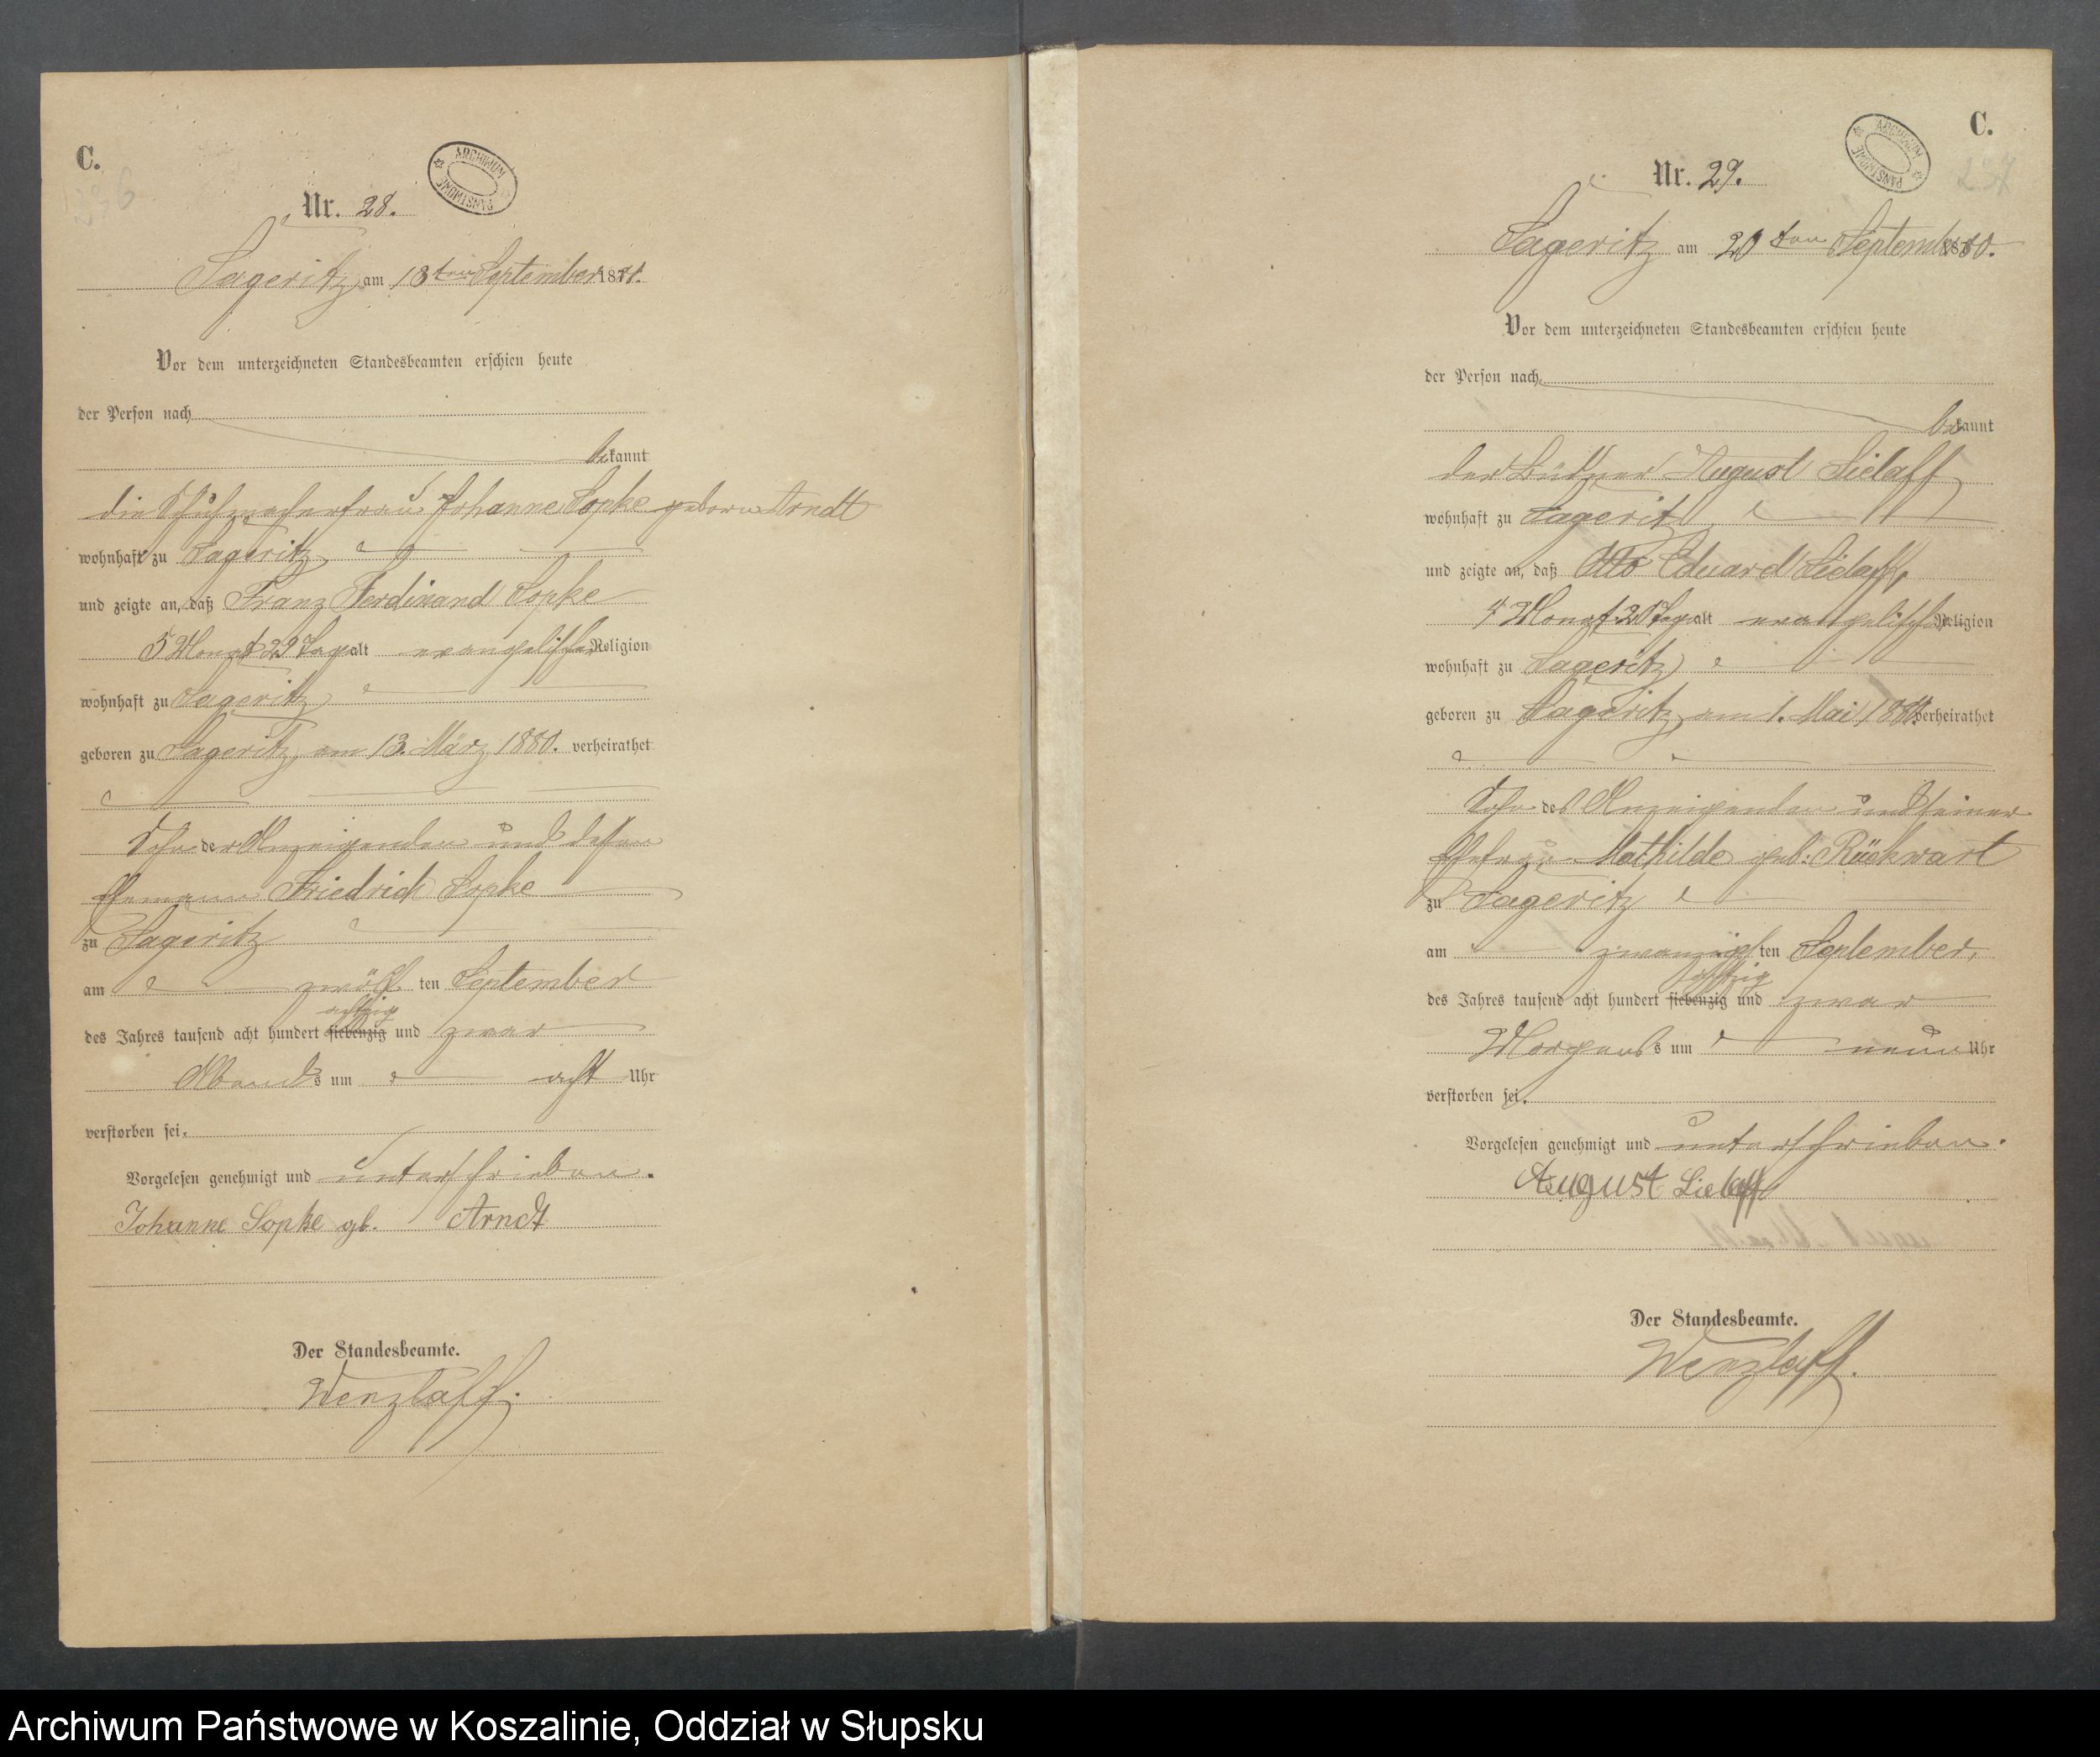 C.
Nr. 28.
ARCHIWUM PAŃSTWOWE
Sageritz am 13ten September 1880.
Vor dem unterzeichneten Standesbeamten erschien heute
der Person nach
bekannt
die Schuhmacherfrau Johanne Sopke geborne Arndt
wohnhaft zu Sageritz
und zeigte an, daß Franz Ferdinand Sopke
5 Monat 29 Tage alt evangelischer Religion
wohnhaft zu Sageritz
geboren zu Sageritz, am 13. März 1880. verheirathet
Sohn der Anzeigenden und dessen
Ehemann Friedrich Sopke
zu Sageritz
am zwölf ten September
des Jahres tausend acht hundert siebenzig achtzig und zwar
Abends um acht Uhr
verstorben sei.
Vorgelesen genehmigt und unterschrieben.
Johanne Sopke gb. Arndt
Der Standesbeamte.
Wenzlaff.
C.
Nr. 29.
ARCHIWUM PAŃSTWOWE
237
Sageritz am 20ten September 1880.
Vor dem unterzeichneten Standesbeamten erschien heute
der Person nach
bekannt
der Büdner August Lielaff
wohnhaft zu Sageritz
und zeigte an, daß Otto Eduard Lielaff,
4 Monat 20 Tage alt evangelischer Religion
wohnhaft zu Sageritz
geboren zu Sageritz, am 1. Mai 1880 verheirathet
Sohn des Anzeigenden und seiner
Ehefrau Mathilde geb: Rückwart
zu Sageritz
am zwanzigsten September,
des Jahres tausend acht hundert siebenzig achtzig und zwar
Morgens um neun Uhr
verstorben sei.
Vorgelesen genehmigt und unterschrieben.
August Lielaff
Der Standesbeamte.
Wenzlaff.
Archiwum Państwowe w Koszalinie, Oddział w Słupsku